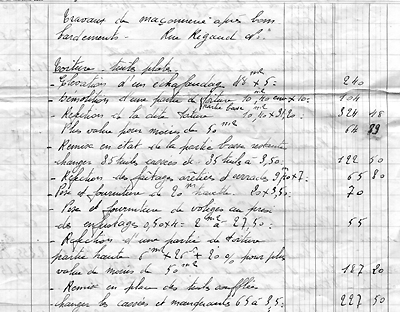 Travaux de maçonnerie après bom
bardements - Rue Regaud
Toiture - tuiles plates
- Elévation d'un échafaudage 48 m2 x 5 = 240
- Démolition d'une partie de toiture 10 m2 40 x 10 = 104
partie basse
- Réfection de la dite toiture 10,40 x 31,20 = 324 48
- Plus value pour moins de 50 m2 64 89
- Remise en état de la partie basse restante
changer 35 tuiles cassées de 35 tuiles à 3,50 = 122 50
- Réfection des faîtages arêtiers et 9,40 x 7 = 65 80
Pose et fourniture de 20 m 20 x 3,50 = 70
- Pose et fourniture de voliges
des 0,50 x 4 = 2 m2 à 27,50 = 55
- Réfection d'une partie de toiture
partie haute 6 m2 x 26 + 20 % pour plus
value de moins de 50 m2 187 20
- Remise en place des tuiles soufflées
changer les cassées et manquantes 65 à 3,5 = 227 50